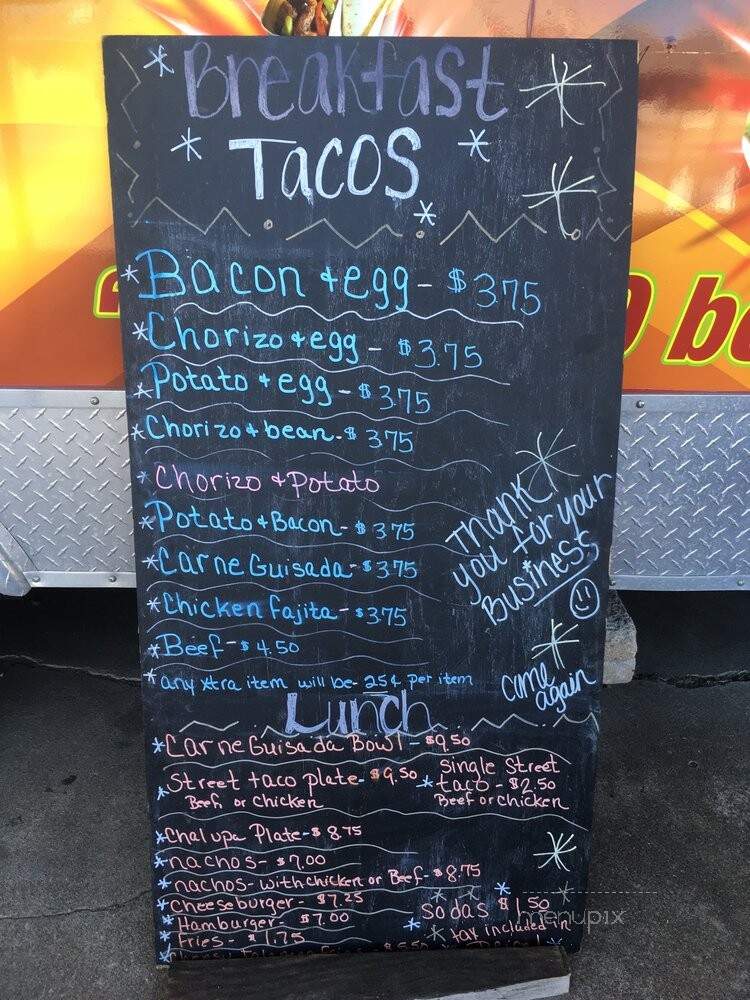 Breakfast
Tacos
Bacon + egg - $3.75
Chorizo + egg - $3.75
Potato + egg - $3.75
Chorizo + bean - $3.75
Chorizo + Potato
Potato + Bacon - $3.75
Carne Guisada - $3.75
Chicken Fajita - $3.75
Beef - $4.50
any xtra item will be - 25¢ per item
Thank
you for your
Business
come
again
Lunch
Carne Guisada Bowl - $9.50
Street taco plate - $9.50
Beef or chicken
Single Street
taco - $2.50
Beef or chicken
Chalupa Plate - $8.75
nachos - $7.00
nachos - with chicken or Beef - $8.75
cheeseburger - $7.25
Hamburger - $7.00
Fries - $1.75
Sodas $1.50
tax included in
menupix